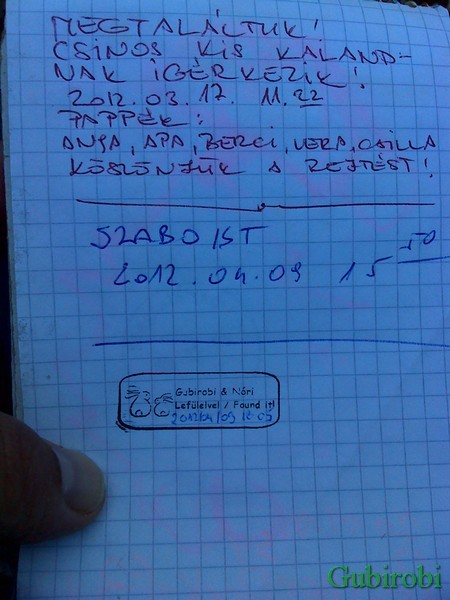 MEGTALÁLTUK!
CSINOS KIS KALAND-
NAK IGÉRKEZIK!
2012.03.17. 11.22
PAPPÉK:
ANYA, APA, BERCI, VERA, CSILLA
KÖSZÖNJÜK A REJTÉST!
SZABO IST
2012.04.09 15 50
Gubirobi & Nóri
Lefülelve! / Found it!
2012/04/09 16:05
Gubirobi